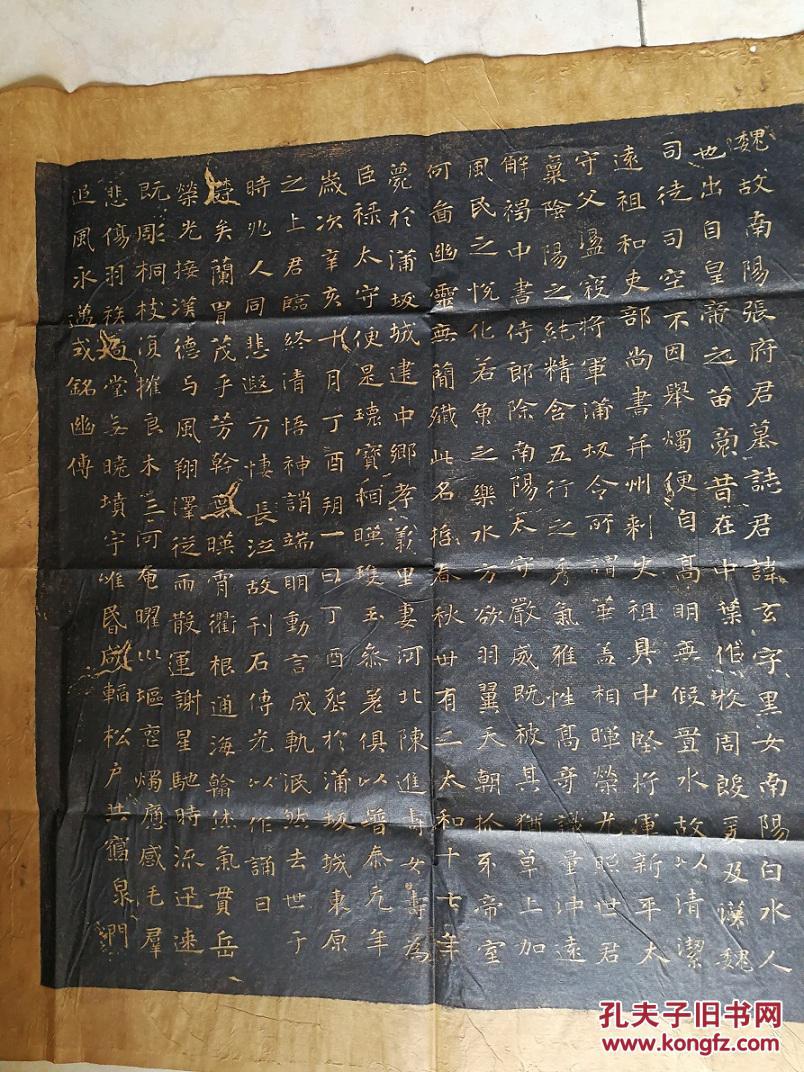 魏故南陽張府君墓誌君諱玄字黑女南陽白水人
也出自皇帝之苗裔昔在中葉作牧周殷爰及漢魏
司徒司空不因舉燭便自高明無假置水故以清潔
遠祖和吏部尚書并州刺史祖具中堅將軍新平太
守父盪寇將軍蒲坂令所謂華蓋相暉榮光照世君
稟陰陽之純精含五行之秀氣雅性高奇識量沖遠
解褐中書侍郎除南陽太守嚴威既被其猶草上加
風民之悅化若魚之樂水方欲羽翼天朝抓牙帝室
何啚幽靈無簡殲此名哲春秋卅有二太和十七年
薨於蒲坂城建中鄉孝義里妻河北陳進壽女壽為
臣祿太守便是瓌寶相暎瓊玉參差俱以普泰元年
歲次辛亥十月丁酉朔一日丁酉葬於蒲坂城東原
之上君臨終清悟神誚端明動言成軌泯然去世于
時兆人同悲遐方悽長泣故刊石傳光以作誦曰
鬱矣蘭胄茂乎芳幹葉暎霄衢根通海翰休氣貫岳
榮光接漢德与風翔澤從雨散運謝星馳時流迅速
既彫桐枝復摧良木三河奄曜川塸罷燭痛感毛群
悲傷羽族扃堂無曉墳宇唯昏咸輼松戶共寢泉門
追風永邁式銘幽傳
孔夫子旧书网
www.kongfz.com